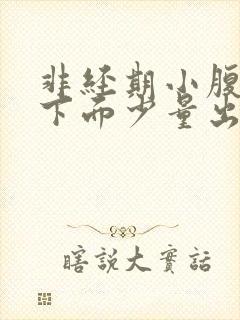 非经期小腹
下而少量出
瞎說大實話